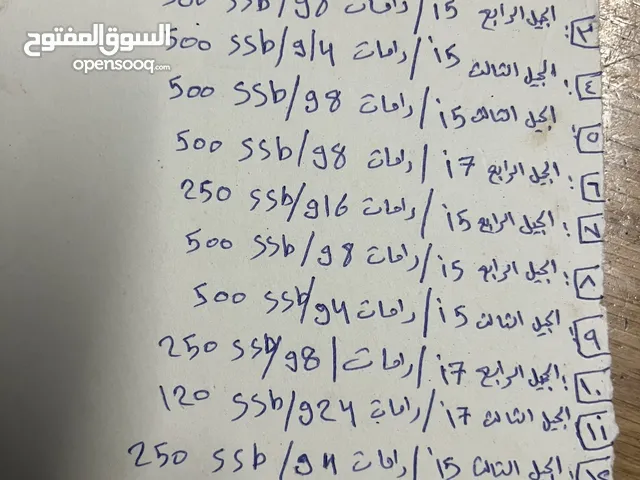 السوق المفتوح
opensooq.com
٣: الجيل الرابع i5 / رامات g8 / ssb 500
٤: الجيل الثالث i5 / رامات g/4 / ssb 500
٥: الجيل الثالث i5 / رامات g8 / ssb 500
٦: الجيل الرابع i7 / رامات g8 / ssb 500
٧: الجيل الرابع i5 / رامات g16 / ssb 250
٨: الجيل الرابع i5 / رامات g8 / ssb 500
٩: الجيل الثالث i5 / رامات g4 / ssb 500
١٠: الجيل الرابع i7 / رامات g8 / ssb 250
١١: الجيل الثالث i7 / رامات g24 / ssb 120
الجيل الثالث i5 / رامات g4 / ssb 250